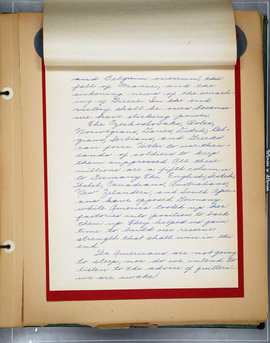 and Belgium overrun, the
fall of France, and the
sickening news of the crush-
ing of Greece. In the end
victory shall be ours because
we have sticking power.
The Czechoslovaks, Poles,
Norwegians, Danes, Dutch, Bel-
gians, Serbians, and Greeks
can force Hitler to use thous-
ands of soldiers to keep
them suppressed. All those
millions are a fifth column
to Germany. The English, Scotch,
Welsh, Canadians, Australians,
New Zealanders, and South
and have opposed Germany,
while America tooled up her
factories into position to back
them up. They helped us gain
time to build our reserve
strength that shall win in the
end.
The Americans are not going
to sleep, nor do we intend to
listen to the advice of quitters
we are awake!